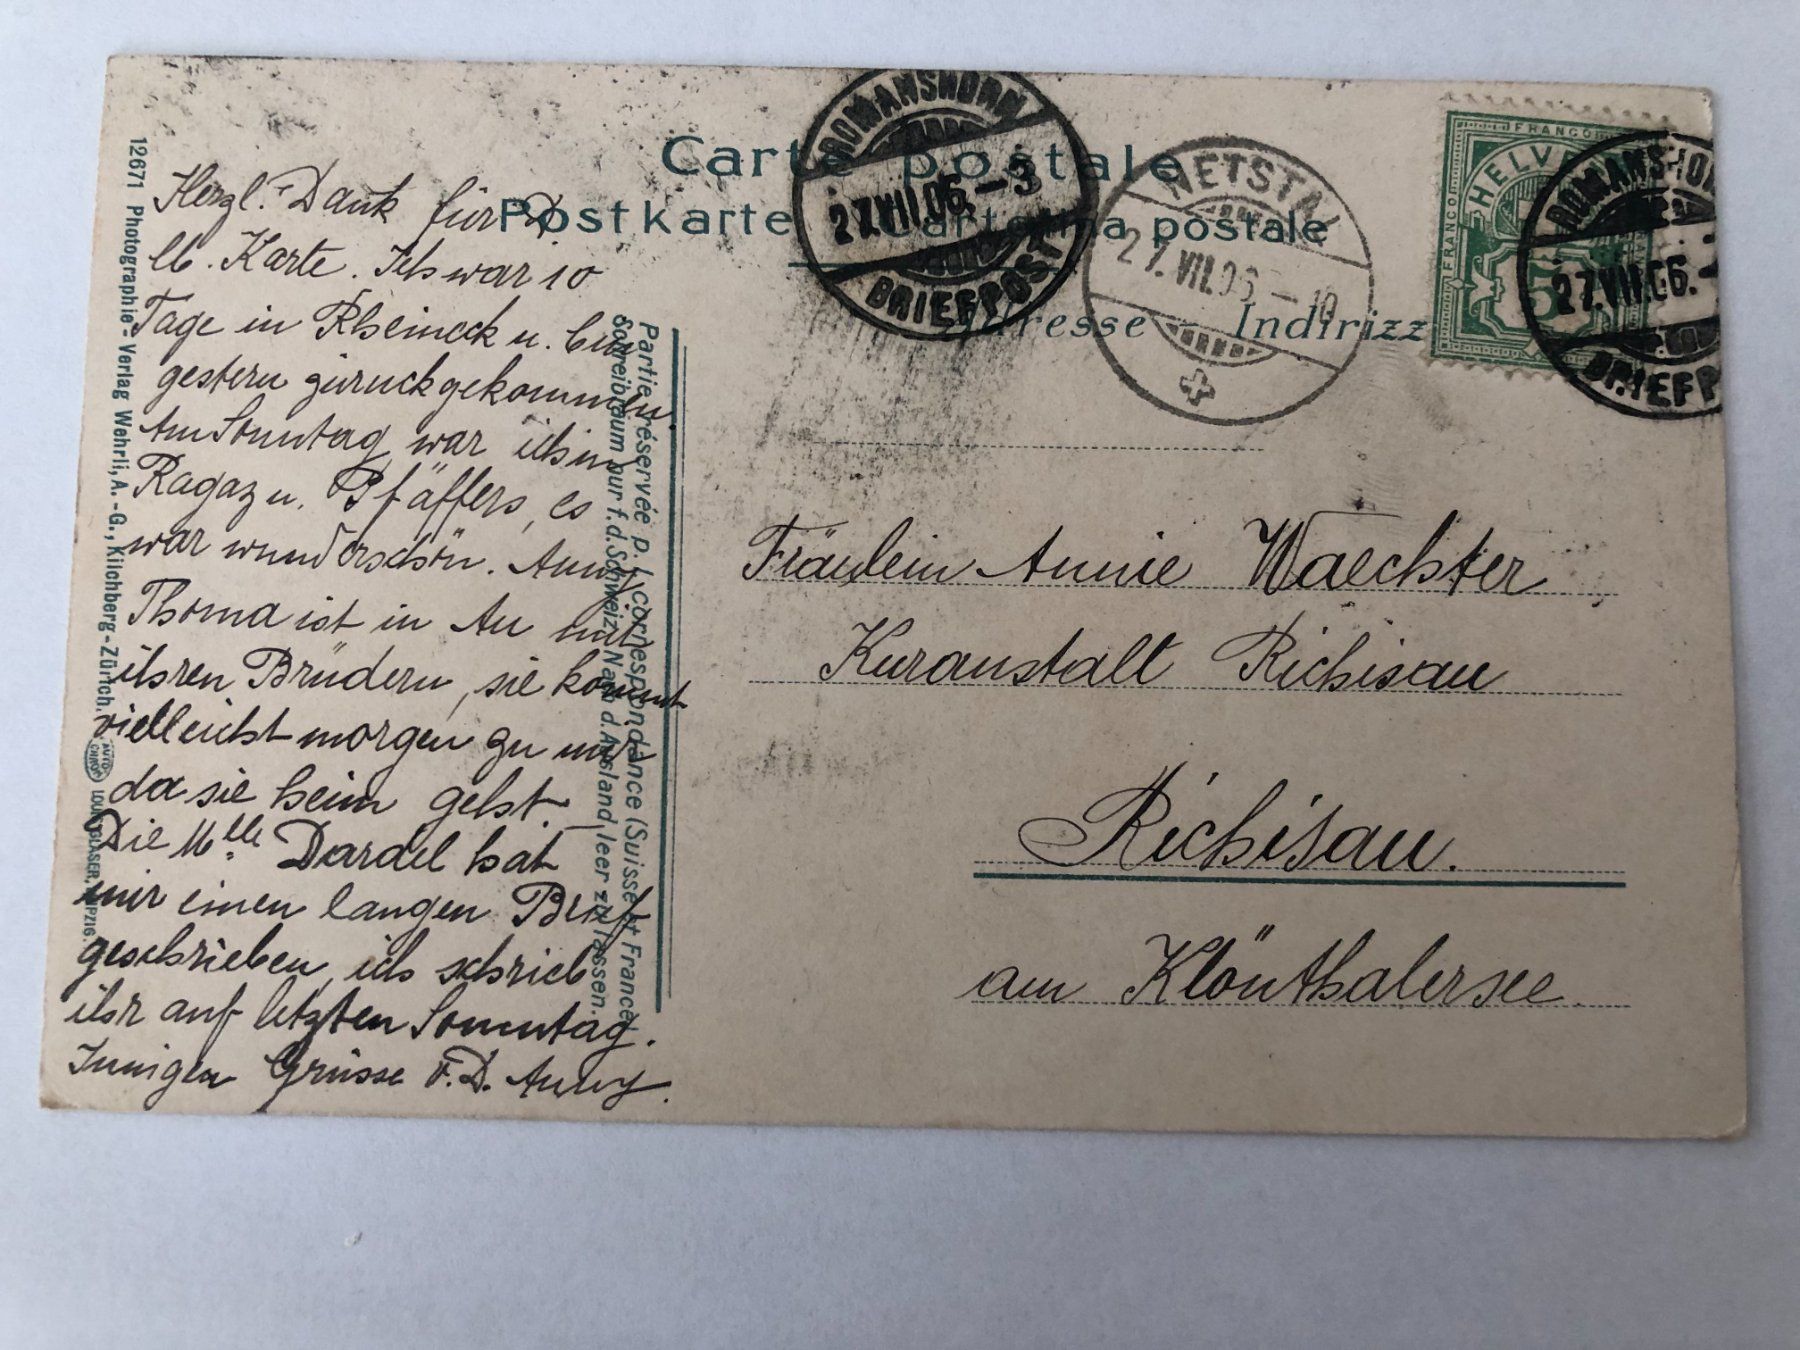 Carte postale
Postkarte Cartolina postale
Adresse Indirizz
ROMANSHORN
27.VII.06.-3
BRIEFPOST
NETSTAL
27.VII.06-10
FRANCO
FRANCO
HELVE
5
ROMANSHO
27.VII.06.-
BRIEFP
12671 Photographie-Verlag Wehrli, A.-G., Kilchberg-Zürich.
AUTO-CHROM LOUIS GLASER, LEIPZIG.
Partie réservée p. l. correspondance (Suisse et France)
Schreibraum nur f. d. Schweiz. Nach d. Ausland leer zu lassen.
Herzl. Dank für D
lb. Karte. Ich war 10
Tage in Rheineck u. bin
gestern zurückgekommen
Am Sonntag war ich in
Ragaz u. Pfäffers, es
war wunderschön. Anny
Thoma ist in Au mit
ihren Brüdern, sie kommt
vielleicht morgen zu mir
da sie heim geht.
Die Mlle Dardel hat
mir einen langen Brief
geschrieben, ich schrieb
ihr auf letzten Sonntag.
Innigen Grüsse v. D. Anny.
Fräulein Annie Waechter
Kuranstalt Richisau
Richisau.
am Klönthalersee.